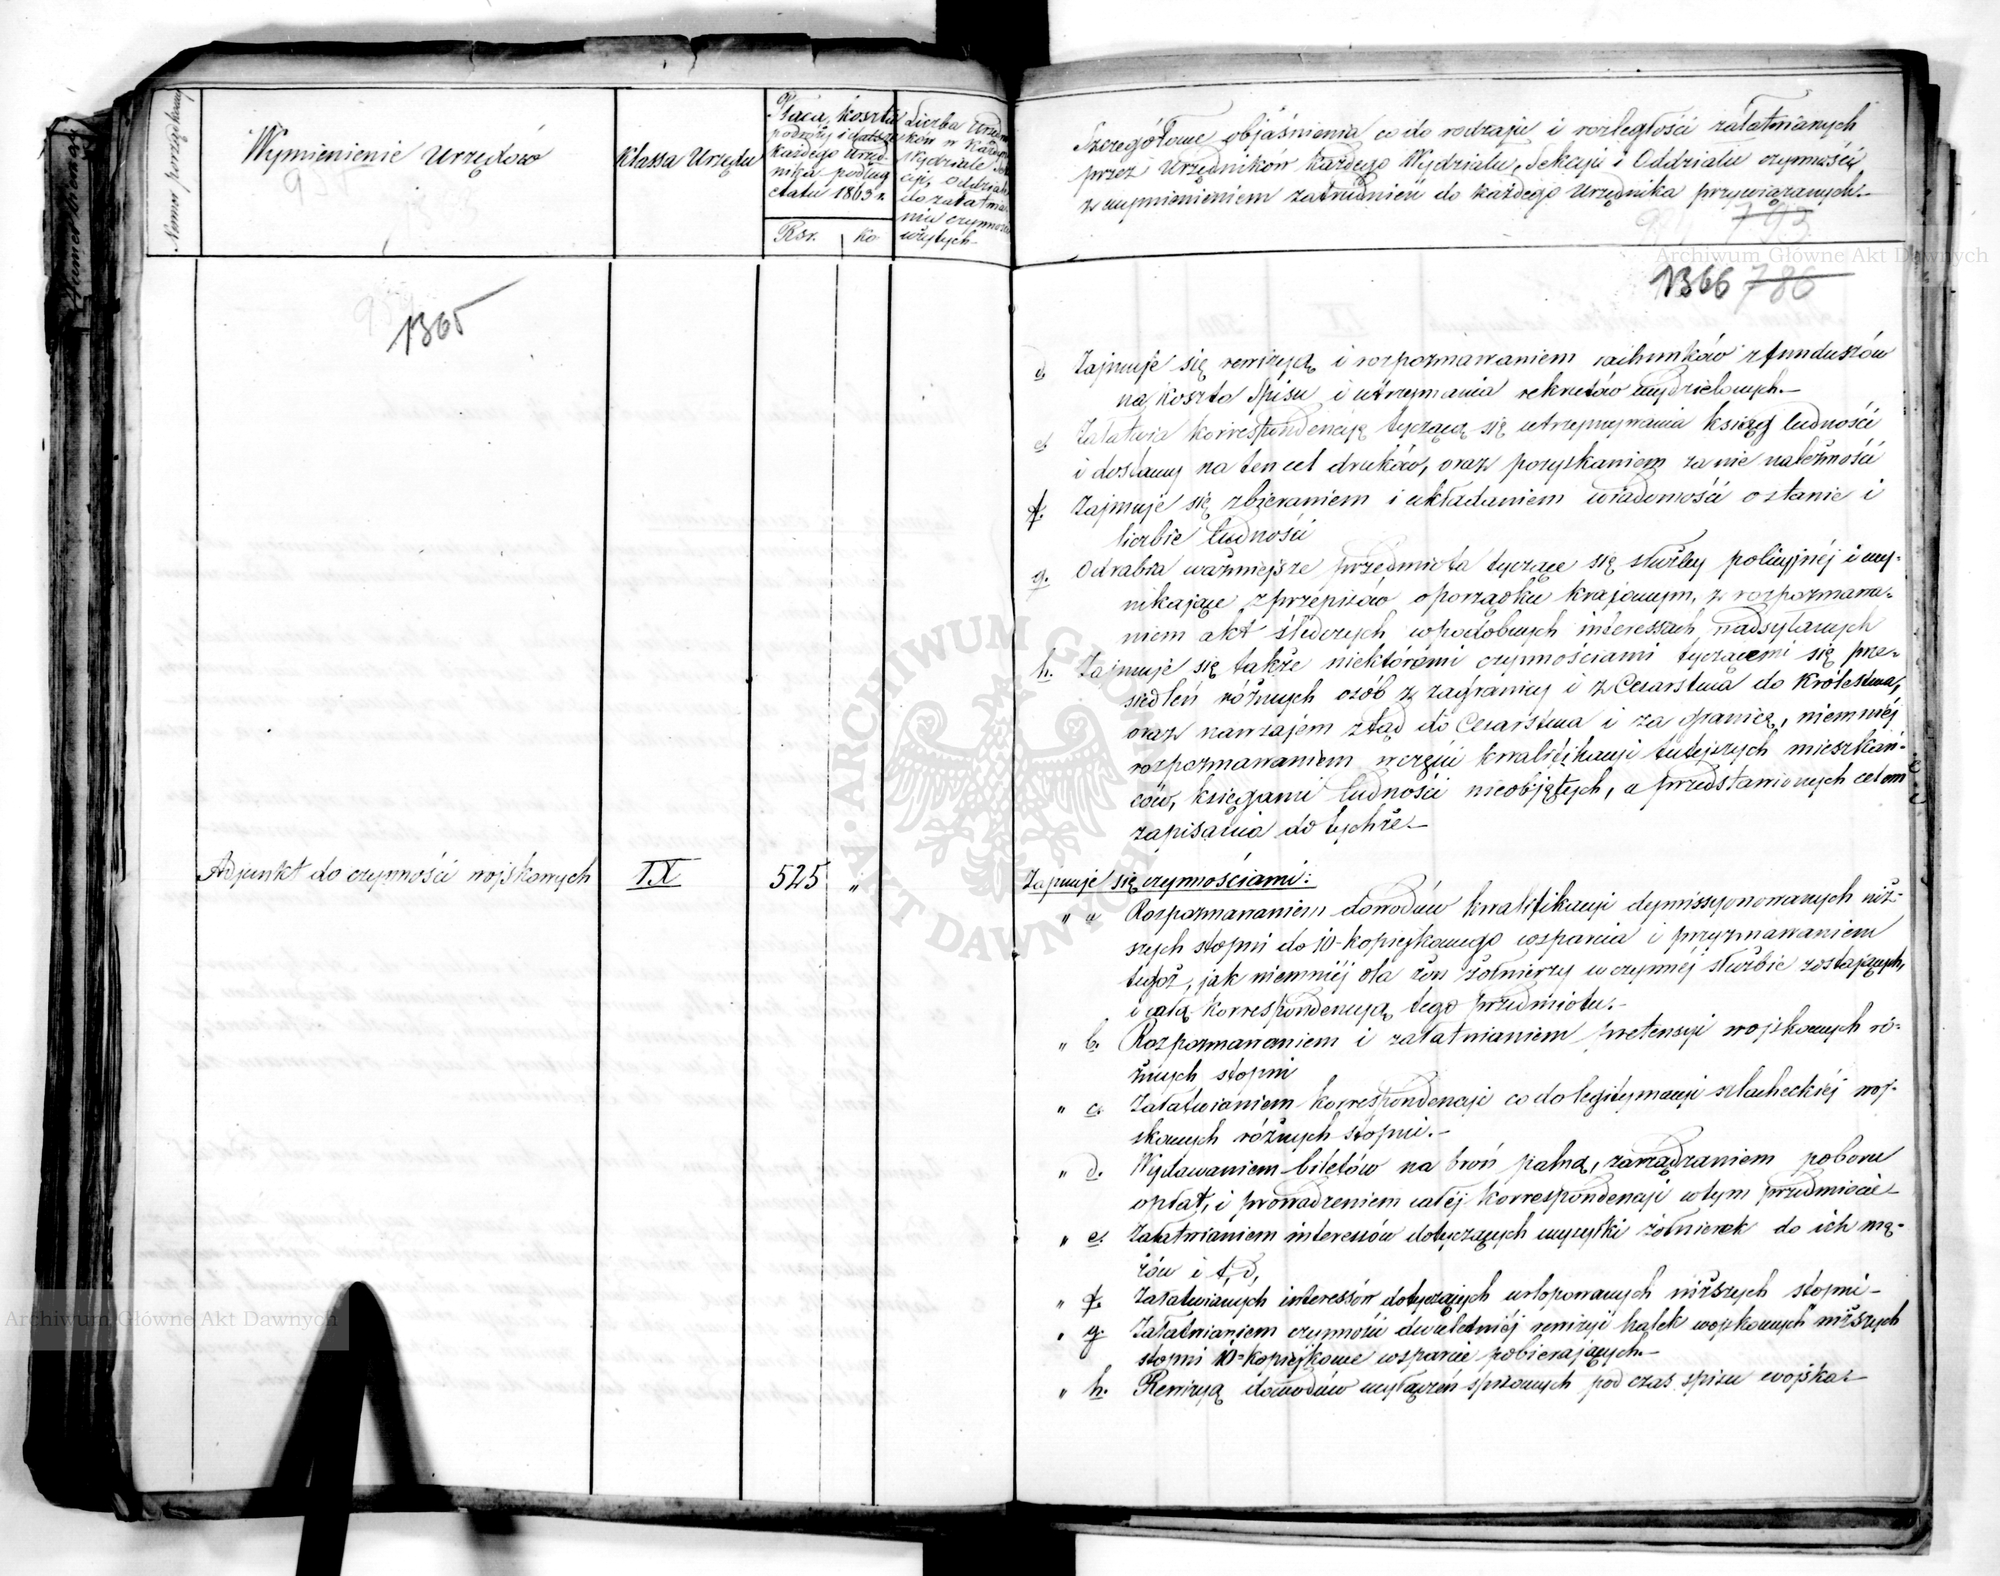 Numer porządkowy
Wymienienie Urzędów
Klassa Urzędu
Płaca, koszta
podróży i dalsze
każdego Urzęd-
nika podług
etatu 1863 r.
Rsr. ko
Liczba Urzędni
ków w każdym
Wydziale Sek
cji, Oddziale
do załatwia
nia czynności
użytych
1365
Adjunkt do czynności wojskowych IX 525 "
Szczegółowe objaśnienia co do rodzaju i rozległości załatwianych
przez Urzędników każdego Wydziału, Sekcji i Oddziału czynności,
z wymienieniem zatrudnień do każdego Urzędnika przywiązanych.-
793
1366 786
d. Zajmuje się rewizyą i rozpoznawaniem rachunków z funduszów
na koszta Spisu i utrzymania rekrutów wydzielonych.-
e. Załatwia korrespondencyą tyczącą się utrzymywania ksiąg ludności
i dostawy na ten cel druków, oraz pozyskaniem za nie należności
f. Zajmuje się zbieraniem i układaniem wiadomości o stanie i
liczbie ludności
g. Odrabia ważniejsze przedmiota tyczące się służby policyjnéj i wy-
nikające z przepisów o porządku krajowym, z rozpoznawa-
niem akt śledczych w podobnych interessach nadsyłanych
h. Zajmuje się także niektóremi czynnościami tyczącemi się prze-
siedleń różnych osób z zagranicy i z Cesarstwa do Królestwa,
oraz nawzajem ztąd do Cesarstwa i za granicę, niemniéj
rozpoznawaniem w części kwalifikacji tutejszych mieszkań-
ców, księgami ludności nieobjętych, a przedstawionych celem
zapisania do tychże.-
Zajmuje się czynnościami:
" a Rozpoznawaniem dowodów kwalifikacji dymissyonowanych niż-
szych stopni do 10-kopiejkowego wsparcia i przyznawaniem
tegoż, jak niemniéj dla żon żołnierzy w czynnéj służbie zostających,
i całą korrespondencyą tego przedmiotu.-
" b. Rozpoznawaniem i załatwianiem pretensyi wojskowych ró-
żnych stopni
" c. Załatwianiem korrespondencji co do legitymacji szlacheckiéj woj-
skowych różnych stopni.-
" d. Wydawaniem biletów na broń palną, zarządzaniem poboru
opłat, i prowadzeniem całéj korrespondencji w tym przedmiocie-
" e. Załatwianiem interessów dotyczących wysyłki żołnierek do ich mę-
żów i t, d,
" f. Załatwianych interessów dotyczących urlopowanych niższych stopni-
" g. Załatwianiem czynności dwuletniéj rewizyi kalek wojskowych niższych
stopni 10-kopiejkowe wsparcie pobierających.-
" h. Rewizyą dowodów wyłączeń spisowych podczas spisu wojska.-
Archiwum Główne Akt Dawnych
Archiwum Główne Akt Dawnych